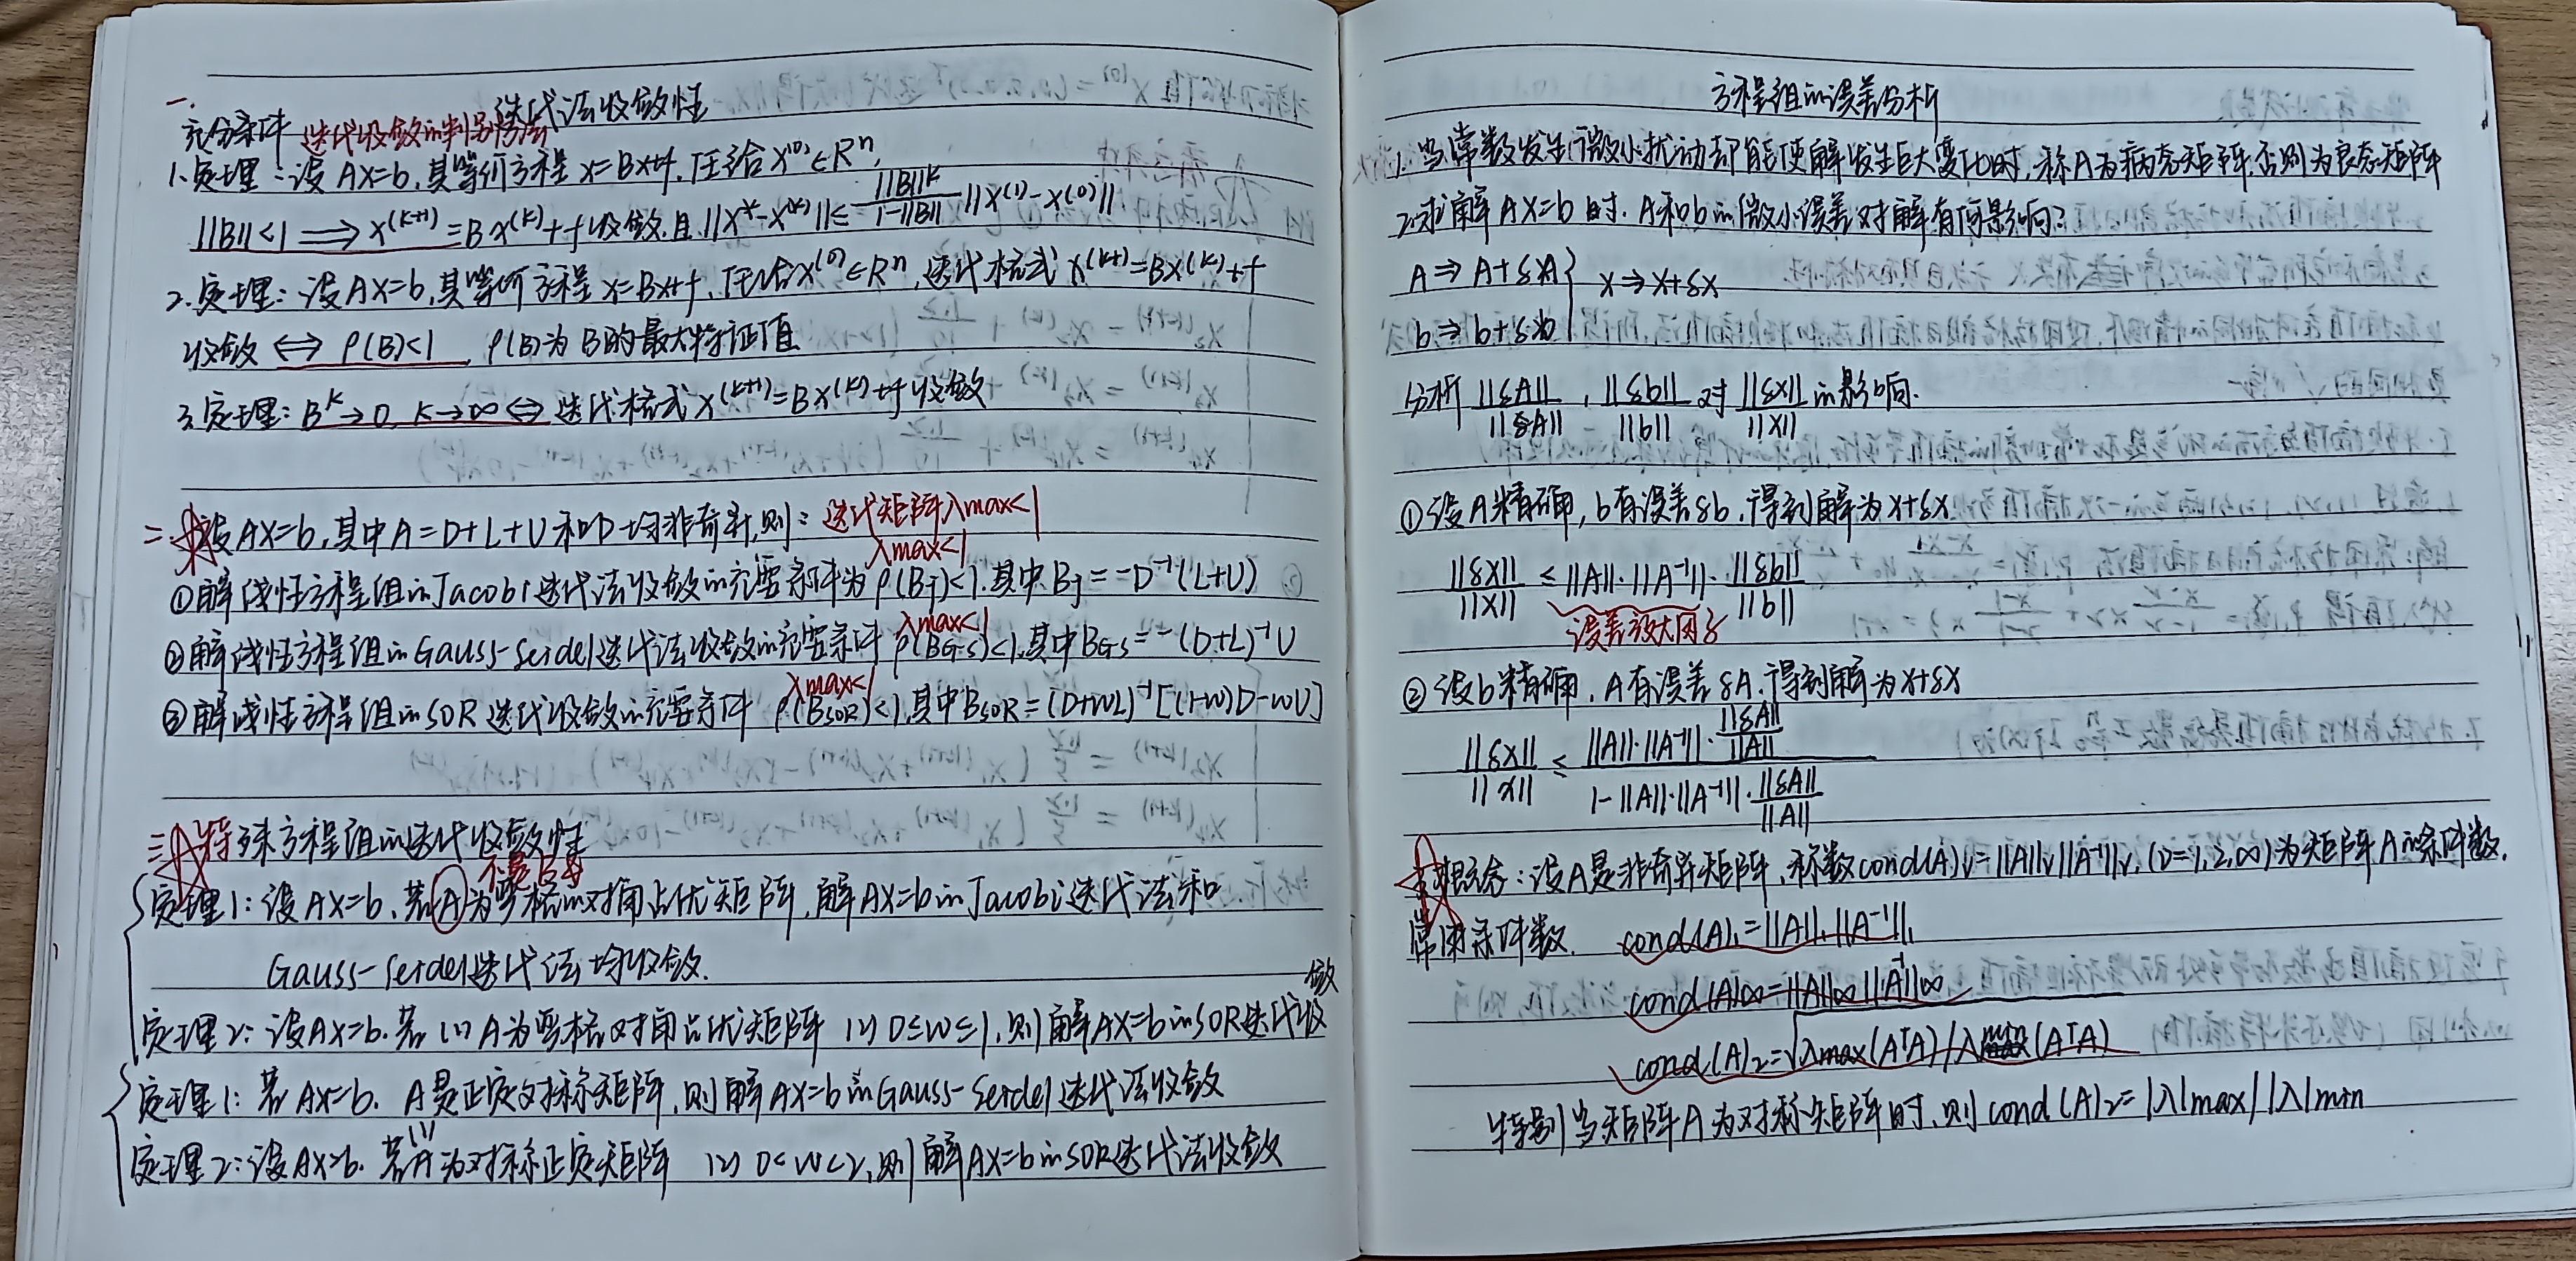 一.
迭代法收敛性
充分条件 迭代收敛的判别方法
1.定理:设AX=b,其等价方程x=Bx+f,任给x^(0)∈R^n,
||B||<1 ⟹ x^(k+1)=Bx^(k)+f收敛,且||x*-x^(k)||≤ ||B||^k/(1-||B||) ||x^(1)-x^(0)||
2.定理:设AX=b,其等价方程x=Bx+f,任给x^(0)∈R^n,迭代格式x^(k+1)=Bx^(k)+f
收敛 ⟺ ρ(B)<1, ρ(B)为B的最大特征值
3.定理:B^k→0,k→∞ ⟺ 迭代格式x^(k+1)=Bx^(k)+f收敛
二.设AX=b,其中A=D+L+U和D均非奇异,则: 迭代矩阵λmax<1
λmax<1
①解线性方程组的Jacobi迭代法收敛的充要条件为ρ(BJ)<1,其中BJ=-D^-1(L+U)
λmax<1
②解线性方程组的Gauss-Seidel迭代法收敛的充要条件ρ(BG-S)<1,其中BG-S=-(D+L)^-1U
λmax<1
③解线性方程组的SOR迭代收敛的充要条件ρ(BSOR)<1,其中BSOR=(D+WL)^-1[(1-w)D-wU]
三.特殊方程组的迭代收敛性
不是B
定理1:设AX=b,若A为严格的对角占优矩阵,解AX=b的Jacobi迭代法和
Gauss-Seidel迭代法均收敛.
定理2:设AX=b.若(1)A为严格对角占优矩阵 (2)0≤W≤1,则解AX=b的SOR迭代收敛
定理1:若AX=b,A是正定对称矩阵,则解AX=b的Gauss-Seidel迭代法收敛
定理2:设AX=b.若(1)A为对称正定矩阵 (2)0<W<2,则解AX=b的SOR迭代法收敛
方程组的误差分析
1.当常数发生微小扰动却能使解发生巨大变化时,称A为病态矩阵,否则为良态矩阵
2.求解AX=b时,A和b的微小误差对解有何影响?
A⇒A+δA } x⇒x+δx
b⇒b+δb
分析 ||δA||/||A||, ||δb||/||b|| 对 ||δx||/||X|| 的影响.
①设A精确,b有误差δb,得到解为x+δx
||δx||/||X|| ≤ ||A||·||A^-1||· ||δb||/||b||
误差放大因子
②设b精确,A有误差δA,得到解为x+δx
||δx||/||x|| ≤ (||A||·||A^-1||·||δA||/||A||)/(1-||A||·||A^-1||·||δA||/||A||)
概念:设A是非奇异矩阵,称数cond(A)v=||A||v||A^-1||v,(v=1,2,∞)为矩阵A的条件数.
常用条件数. cond(A)1=||A||1||A^-1||1
cond(A)∞=||A||∞||A^-1||∞
cond(A)2=√(λmax(A^TA)/λmin(A^TA))
特别当矩阵A为对称矩阵时,则cond(A)2=|λ|max/|λ|min